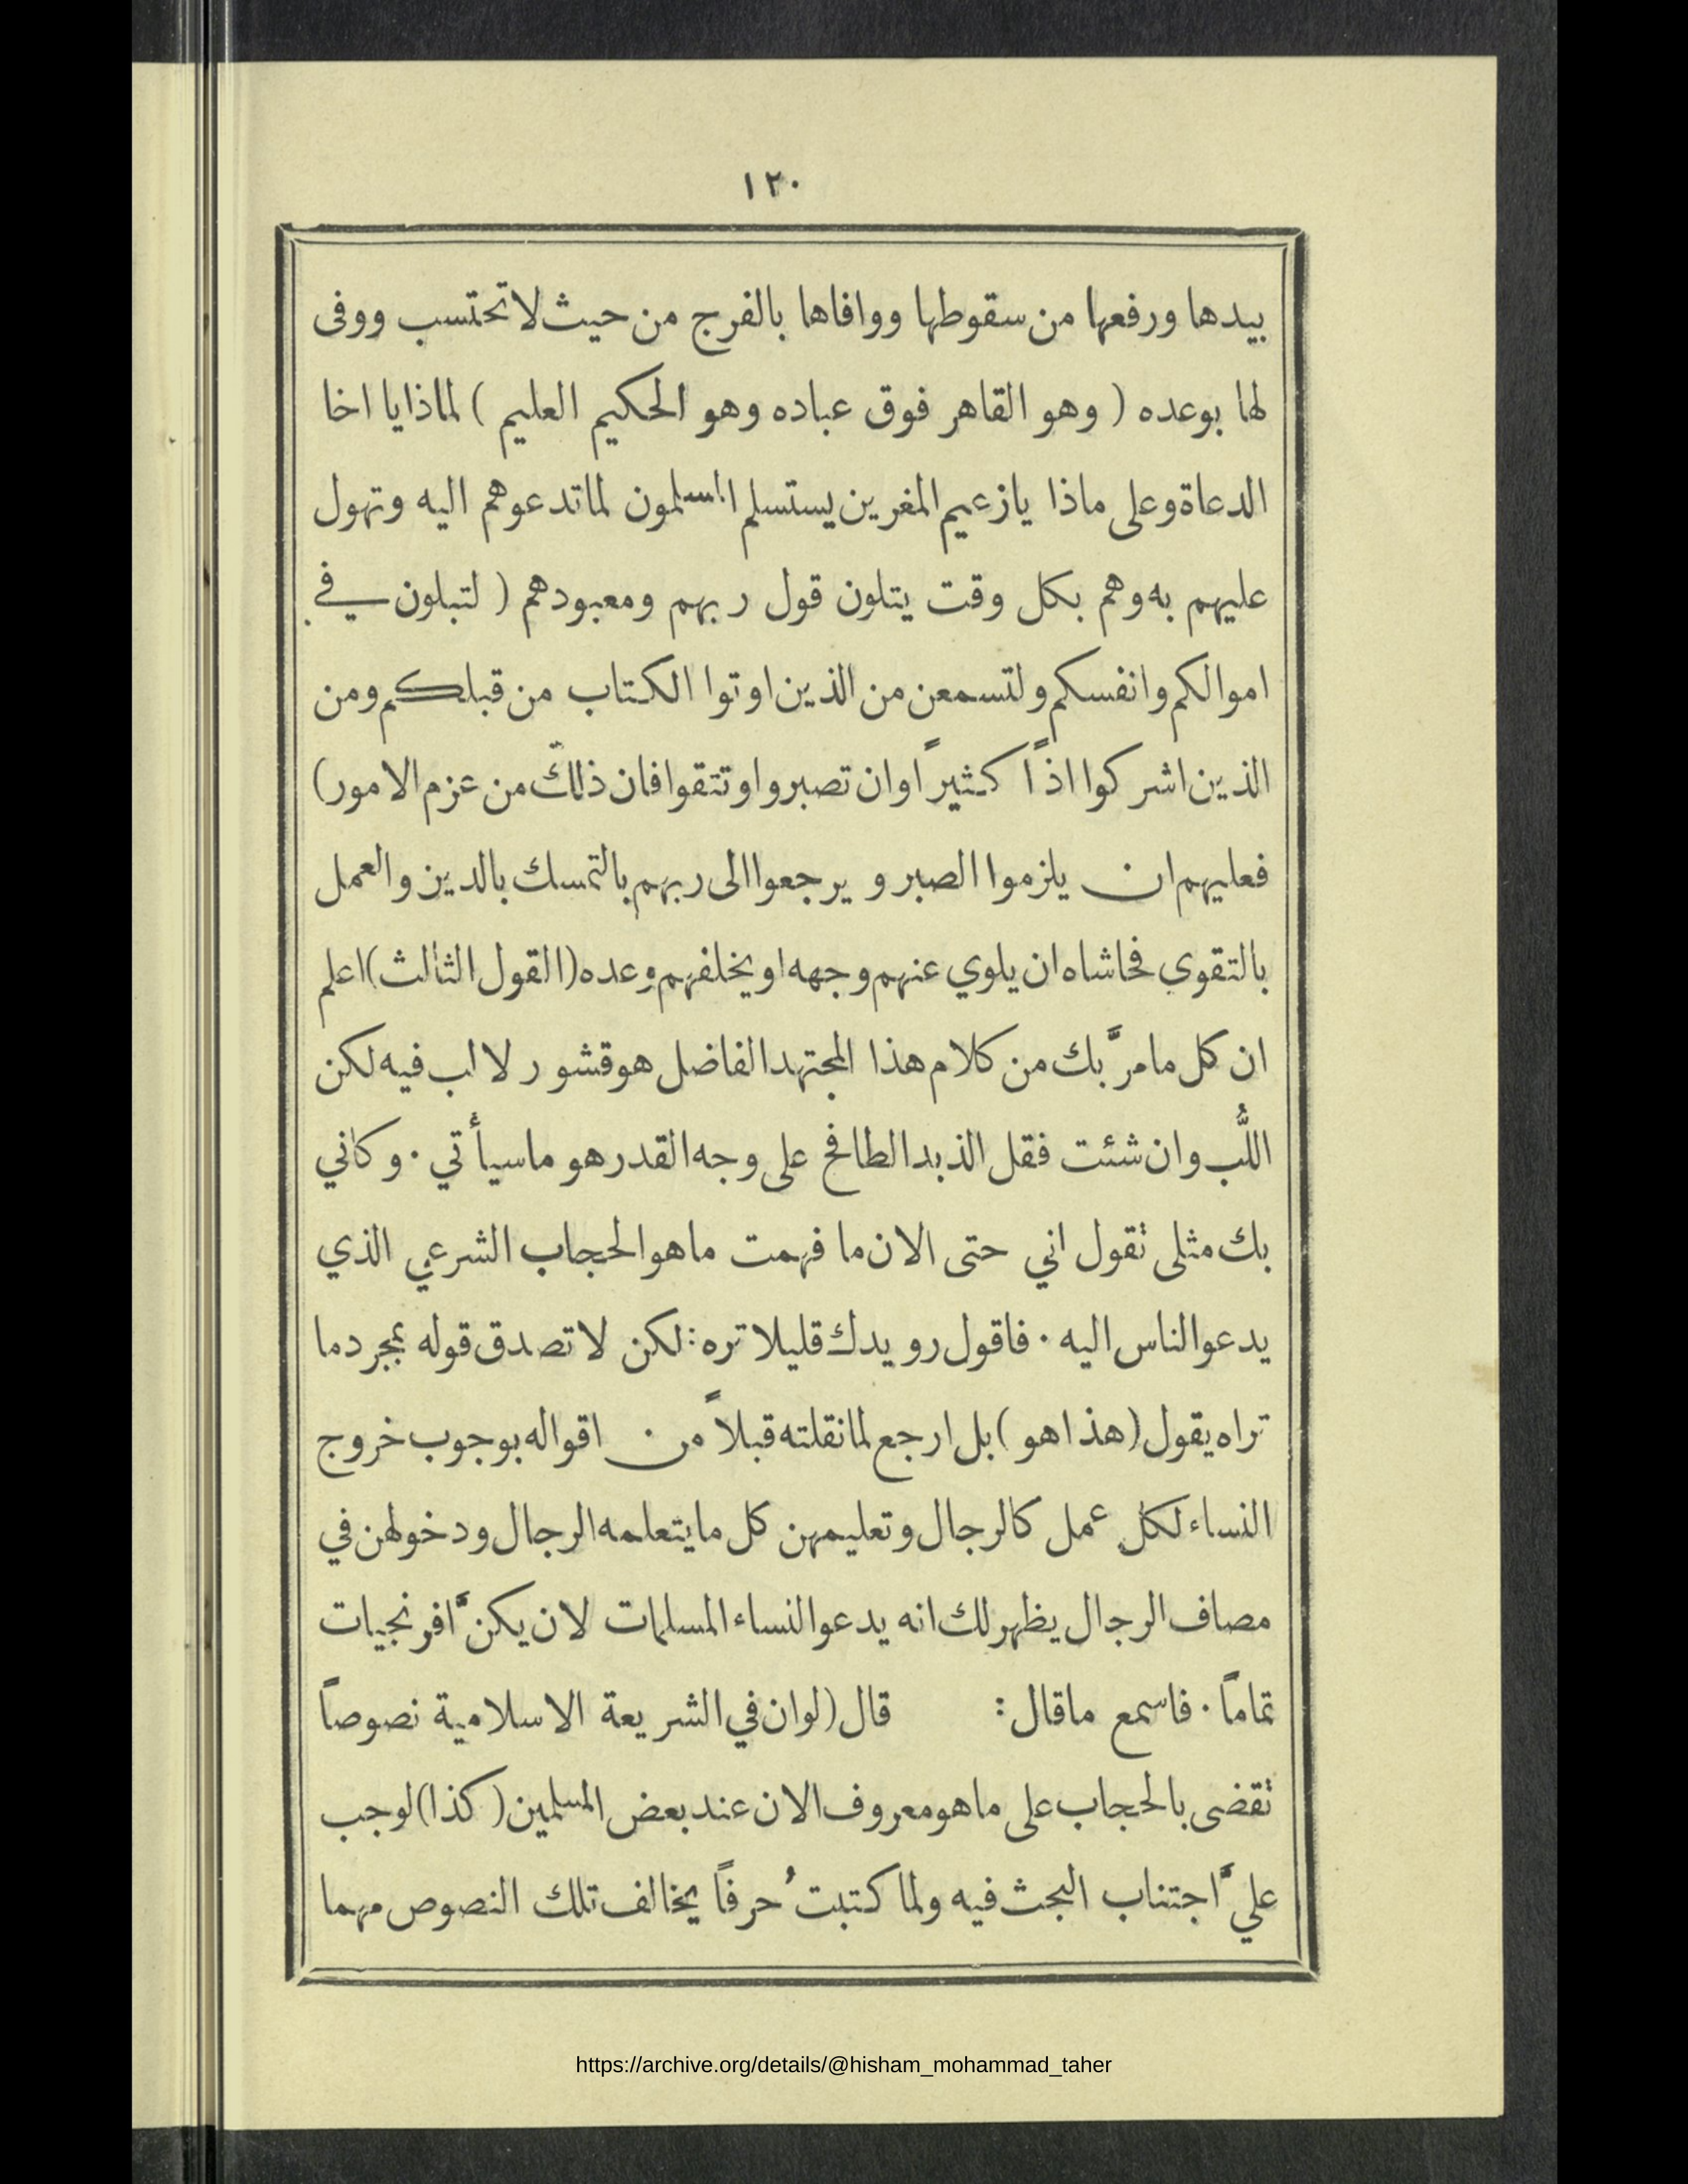 ١٢٠
بيدها ورفعها من سقوطها ووافاها بالفرج من حيث لا تحتسب ووفى
لها بوعده ( وهو القاهر فوق عباده وهو الحكيم العليم ) لماذا يا اخا
الدعاة وعلى ماذا يا زعيم المغرين يستسلم المسلمون لما تدعوهم اليه وتهول
عليهم به وهم بكل وقت يتلون قول ربهم ومعبودهم ( لتبلون في
اموالكم وانفسكم ولتسمعن من الذين اوتوا الكتاب من قبلكم ومن
الذين اشركوا اذاً كثيراً وان تصبروا وتتقوا فان ذلك من عزم الامور)
فعليهم ان يلزموا الصبر و يرجعوا الى ربهم بالتمسك بالدين والعمل
بالتقوي فحاشاه ان يلوي عنهم وجهه او يخلفهم وعده (القول الثالث) اعلم
ان كل ما مرَّ بك من كلام هذا المجتهد الفاضل هو قشور لا لب فيه لكن
اللُّب وان شئت فقل الذبد الطافح على وجه القدر هو ما سيأتي · وكاني
بك مثلى تقول اني حتى الان ما فهمت ما هو الحجاب الشرعي الذي
يدعو الناس اليه · فاقول رويدك قليلا تره : لكن لا تصدق قوله بمجرد ما
تراه يقول (هذا هو) بل ارجع لما نقلته قبلاً من اقواله بوجوب خروج
النساء لكل عمل كالرجال وتعليمهن كل ما يتعلمه الرجال ودخولهن في
مصاف الرجال يظهر لك انه يدعو النساء المسلمات لان يكنَّ افرنجيات
تماماً · فاسمع ما قال : قال (لو ان في الشريعة الاسلامية نصوصاً
تقضى بالحجاب على ما هو معروف الان عند بعض المسلمين (كذا) لوجب
عليَّ اجتناب البحث فيه ولما كتبتُ حرفاً يخالف تلك النصوص مهما
https://archive.org/details/@hisham_mohammad_taher